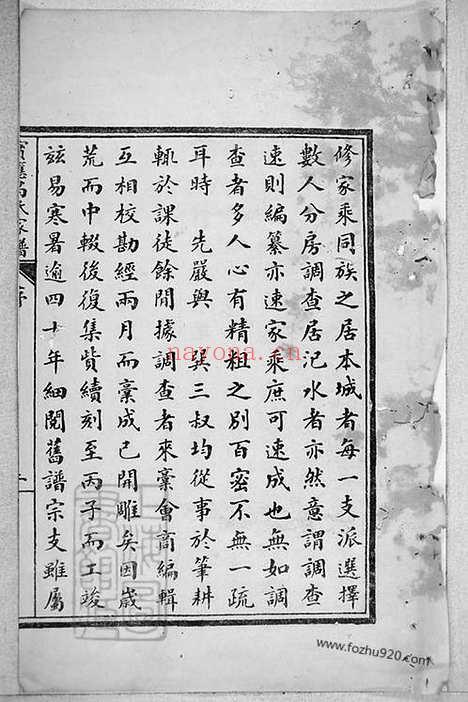 修家乘同族之居本城者每一支派選擇
數人分房調查居氾水者亦然意謂調查
速則編纂亦速家乘庶可速成也無如調
查者多人心有精粗之別百密不無一疏
耳時　先嚴與　巽三叔均從事於筆耕
輒於課徒餘間據調查者來藁會商編輯
互相校勘經兩月而藁成已開雕矣因歲
荒而中輟後復集貲續刻至丙子而工竣
茲易寒暑逾四十年細閱舊譜宗支雖屬
氏家譜
序
nayona.cn
www.fozhu920.com